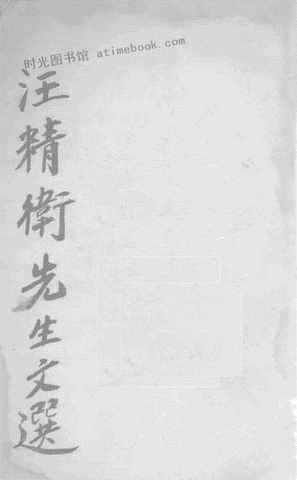 时光图书馆 atimebook.com
汪精衛先生文選